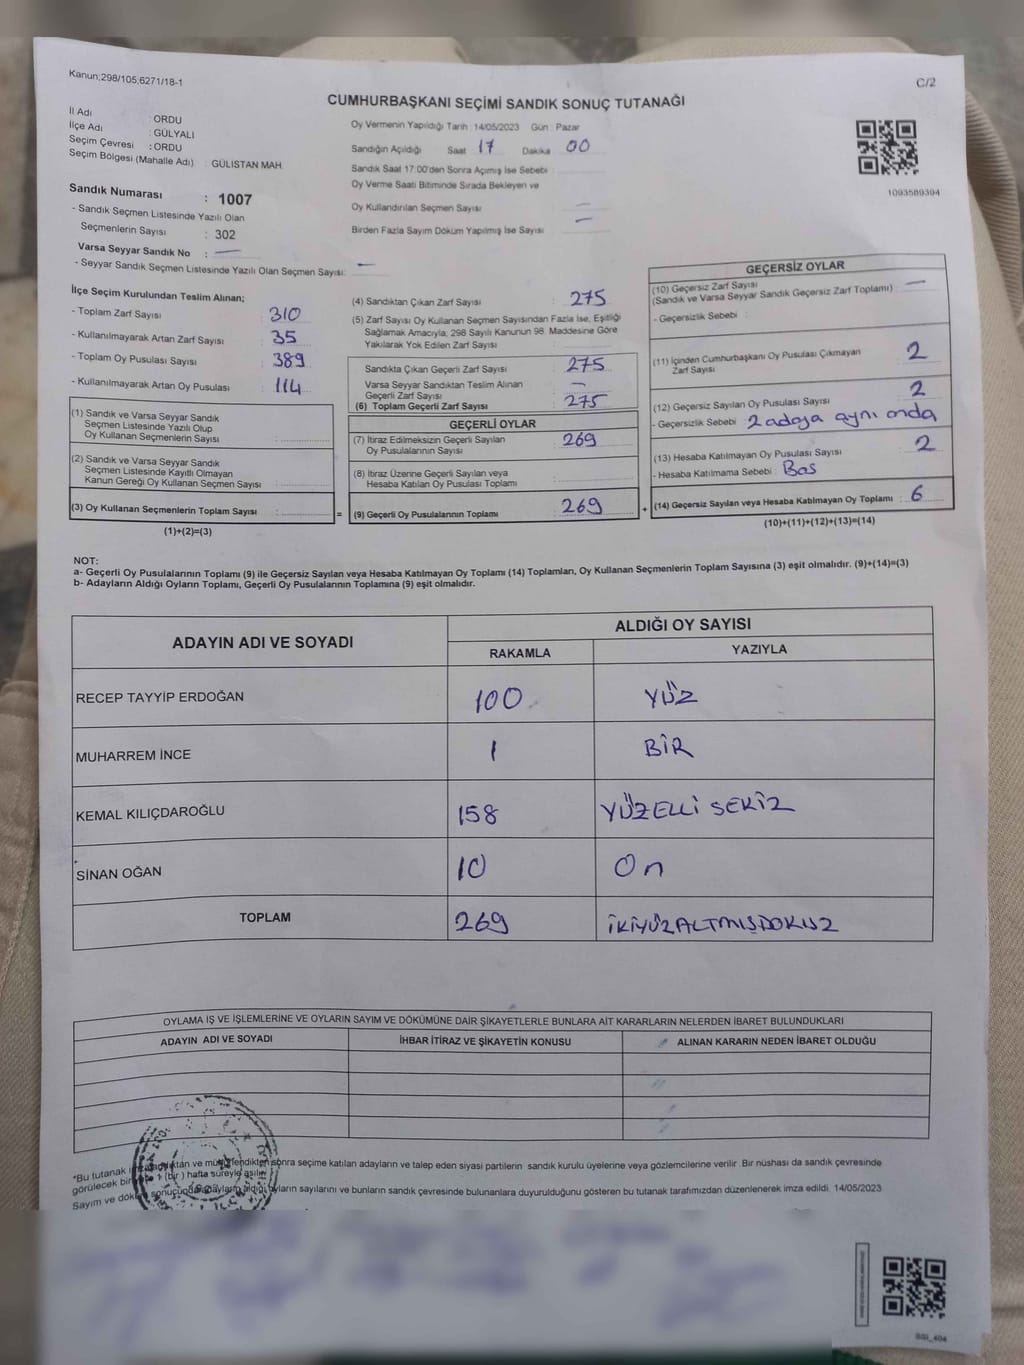 Kanun;298/105;6271/18-1
C/2
CUMHURBAŞKANI SEÇİMİ SANDIK SONUÇ TUTANAĞI
İl Adı : ORDU
İlçe Adı : GÜLYALI
Seçim Çevresi : ORDU
Seçim Bölgesi (Mahalle Adı) : GÜLİSTAN MAH.
Sandık Numarası : 1007
- Sandık Seçmen Listesinde Yazılı Olan
Seçmenlerin Sayısı : 302
Varsa Seyyar Sandık No : —
- Seyyar Sandık Seçmen Listesinde Yazılı Olan Seçmen Sayısı: —
Oy Vermenin Yapıldığı Tarih : 14/05/2023 Gün : Pazar
Sandığın Açıldığı Saat 17 Dakika 00
Sandık Saat 17:00'den Sonra Açımış İse Sebebi :
Oy Verme Saati Bitiminde Sırada Bekleyen ve
Oy Kullandırılan Seçmen Sayısı —
Birden Fazla Sayım Döküm Yapılmış İse Sayısı —
1093589394
İlçe Seçim Kurulundan Teslim Alınan;
- Toplam Zarf Sayısı : 310
- Kullanılmayarak Artan Zarf Sayısı : 35
- Toplam Oy Pusulası Sayısı : 389
- Kullanılmayarak Artan Oy Pusulası : 114
(1) Sandık ve Varsa Seyyar Sandık
Seçmen Listesinde Yazılı Olup
Oy Kullanan Seçmenlerin Sayısı :
(2) Sandık ve Varsa Seyyar Sandık
Seçmen Listesinde Kayıtlı Olmayan
Kanun Gereği Oy Kullanan Seçmen Sayısı :
(3) Oy Kullanan Seçmenlerin Toplam Sayısı :
(1)+(2)=(3)
=
(4) Sandıktan Çıkan Zarf Sayısı : 275
(5) Zarf Sayısı Oy Kullanan Seçmen Sayısından Fazla İse, Eşitliği
Sağlamak Amacıyla, 298 Sayılı Kanunun 98. Maddesine Göre
Yakılarak Yok Edilen Zarf Sayısı :
Sandıkta Çıkan Geçerli Zarf Sayısı : 275
Varsa Seyyar Sandıktan Teslim Alınan
Geçerli Zarf Sayısı : —
(6) Toplam Geçerli Zarf Sayısı : 275
GEÇERLİ OYLAR
(7) İtiraz Edilmeksizin Geçerli Sayılan
Oy Pusulalarının Sayısı : 269
(8) İtiraz Üzerine Geçerli Sayılan veya
Hesaba Katılan Oy Pusulası Toplamı :
(9) Geçerli Oy Pusulalarının Toplamı : 269
+
GEÇERSİZ OYLAR
(10) Geçersiz Zarf Sayısı
(Sandık ve Varsa Seyyar Sandık Geçersiz Zarf Toplamı) : —
- Geçersizlik Sebebi :
(11) İçinden Cumhurbaşkanı Oy Pusulası Çıkmayan
Zarf Sayısı : 2
(12) Geçersiz Sayılan Oy Pusulası Sayısı : 2
- Geçersizlik Sebebi : 2 adaya aynı anda
(13) Hesaba Katılmayan Oy Pusulası Sayısı : 2
- Hesaba Katılmama Sebebi : Bos
(14) Geçersiz Sayılan veya Hesaba Katılmayan Oy Toplamı : 6
(10)+(11)+(12)+(13)=(14)
NOT:
a- Geçerli Oy Pusulalarının Toplamı (9) ile Geçersiz Sayılan veya Hesaba Katılmayan Oy Toplamı (14) Toplamları, Oy Kullanan Seçmenlerin Toplam Sayısına (3) eşit olmalıdır. (9)+(14)=(3)
b- Adayların Aldığı Oyların Toplamı, Geçerli Oy Pusulalarının Toplamına (9) eşit olmalıdır.
ADAYIN ADI VE SOYADI
ALDIĞI OY SAYISI
RAKAMLA YAZIYLA
RECEP TAYYİP ERDOĞAN 100 YÜZ
MUHARREM İNCE 1 BİR
KEMAL KILIÇDAROĞLU 158 YÜZELLİ SEKİZ
SİNAN OĞAN 10 On
TOPLAM 269 İKİYÜZALTMIŞDOKUZ
OYLAMA İŞ VE İŞLEMLERİNE VE OYLARIN SAYIM VE DÖKÜMÜNE DAİR ŞİKAYETLERLE BUNLARA AİT KARARLARIN NELERDEN İBARET BULUNDUKLARI
ADAYIN ADI VE SOYADI İHBAR İTİRAZ VE ŞİKAYETİN KONUSU ALINAN KARARIN NEDEN İBARET OLDUĞU
*Bu tutanak sonra seçime katılan adayların ve talep eden siyasi partilerin sandık kurulu üyelerine veya gözlemcilerine verilir. Bir nüshası da sandık çevresinde
görülecek bir 1 (bir) hafta süreyle asılır.
Sayım ve döküm oyların sayılarını ve bunların sandık çevresinde bulunanlara duyurulduğunu gösteren bu tutanak tarafımızdan düzenlenerek imza edildi. 14/05/2023